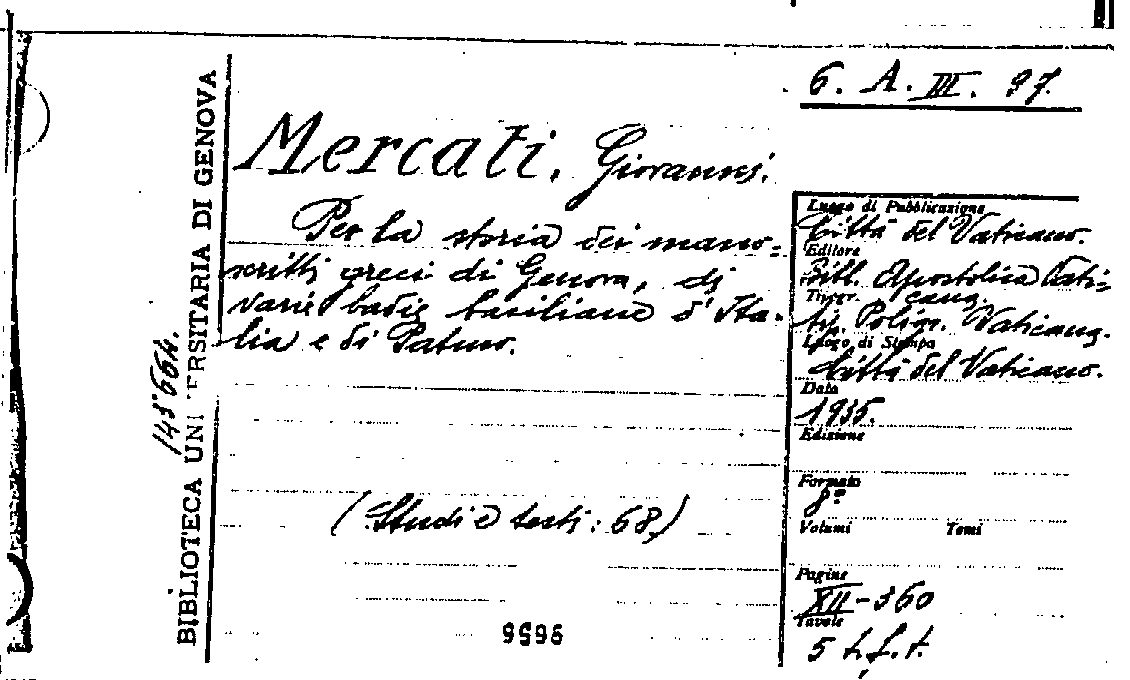 6. A. III. 97.
Mercati, Giovanni.
Per la storia dei mano=
scritti greci di Genova, di
varie badie basiliane d'Ita-
lia e di Patmo.
(Studi e testi: 68)
9596
BIBLIOTECA UNI ERSITARIA DI GENOVA
143664.
Luogo di Pubblicazione
Città del Vaticano.
Editore
Bibl. Apostolica Vati=
cana.
Tipogr.
tip. Poligr. Vaticana.
Luogo di Stampa
Città del Vaticano.
Data
1935.
Edizione
Formato
8º
Volumi Tomi
Pagine
XII-360
Tavole
5 t.f.t.